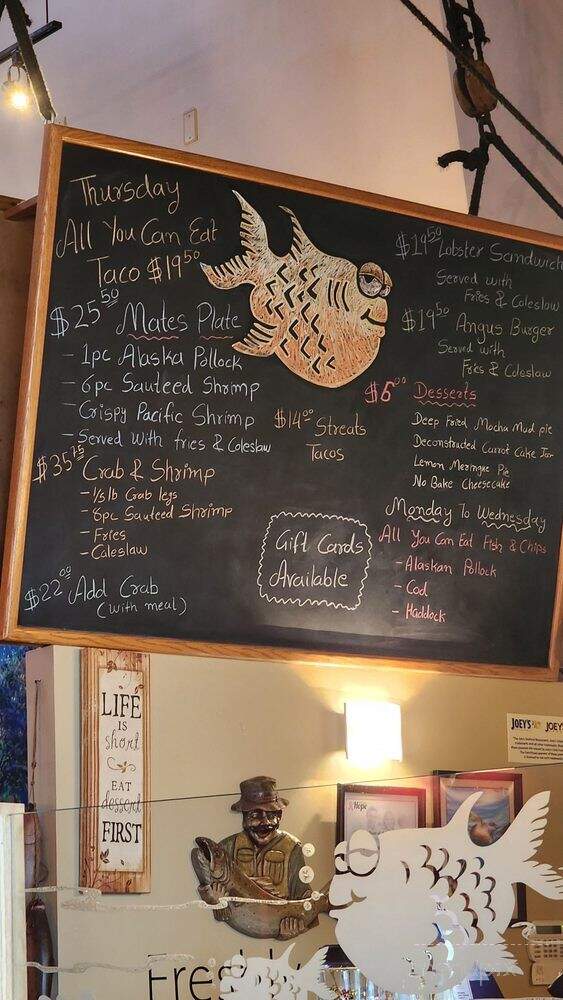 Thursday
All You Can Eat
Taco $19.50
$25.50 Mates Plate
- 1pc Alaska Pollock
- 6pc Sauteed Shrimp
- Crispy Pacific Shrimp
- Served with fries & Coleslaw
$35.75 Crab & Shrimp
- 1/5 lb Crab legs
- 8pc Sauteed Shrimp
- Fries
- Caleslaw
$22.00 Add Crab
(with meal)
$14.00 Streats
Tacos
Gift Cards
Available
$19.50 Lobster Sandwich
Served with
Fries & Coleslaw
$19.50 Angus Burger
Served with
Fries & Coleslaw
$6.00 Desserts
Deep Fried Mocha Mud pie
Deconstructed Carrot Cake Jar
Lemon Meringue Pie
No Bake Cheesecake
Monday To Wednesday
All You Can Eat Fish & Chips
- Alaskan Pollock
- Cod
- Haddock
LIFE
IS
short
EAT
dessert
FIRST
JOEY'S JOEY'
Hope